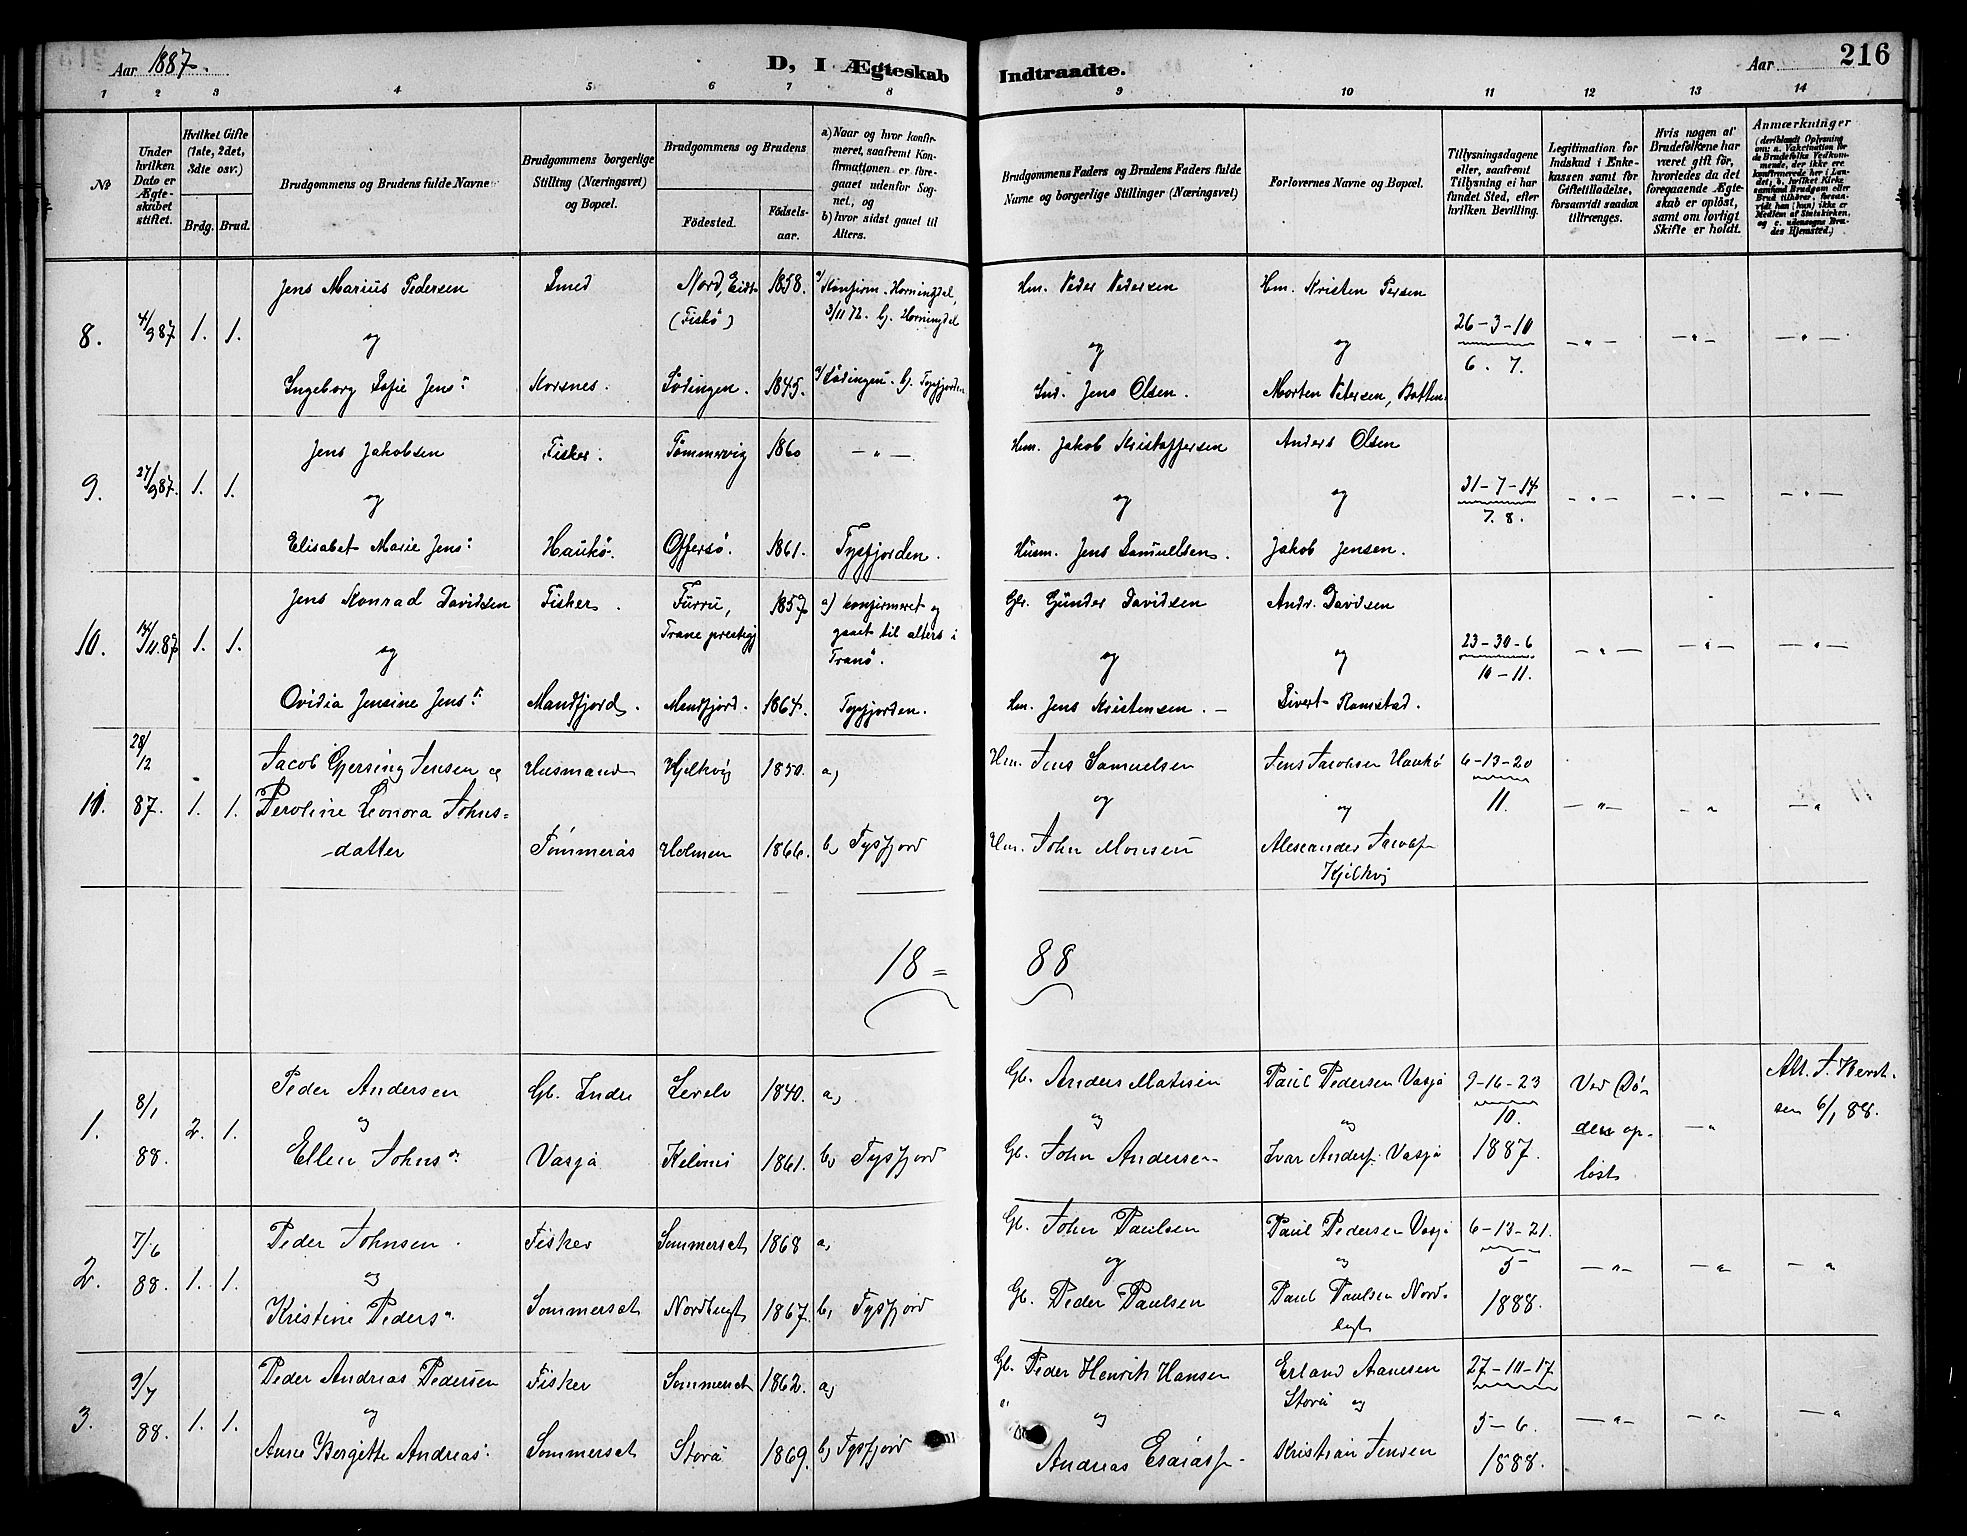 Aar 1887.
D, I Ægteskab
Indtraadte.
Aar
216
1 2 3 4 5 6 7 8 9 10 11 12 13 14
No
Under hvilken Dato er Ægteskabet stiftet.
Hvilket Gifte (1ste, 2det, 3die osv.)
Brdg. Brud.
Brudgommens og Brudens fulde Navne
Brudgommens borgerlige Stilling (Næringsvei) og Bopæl.
Brudgommens og Brudens
Fødested.
Fødselsaar.
a) Naar og hvor konfirmeret, saafremt Konfirmationen er foregaaet udenfor Sognet, og
b) hvor sidst gaaet til Alters.
Brudgommens Faders og Brudens Faders fulde Navne og borgerlige Stillinger (Næringsvei)
Forlovernes Navne og Bopæl.
Tillysningsdagene eller, saafremt Tillysning ei har fundet Sted, efter hvilken Bevilling.
Legitimation for Indskud i Enkekassen samt for Giftetilladelse, forsaavidt saadan tiltrænges.
Hvis nogen af Brudefolkene har været gift før, hvorledes da det foregaaende Ægteskab er opløst, samt om lovligt Skifte er holdt.
Anmærkninger
(deriblandt Oplysning om: a. Vakcination for de Brudefolks Vedkommende, der ikke ere konfirmerede her i Landet, b. hvilket Kirkesamfund Brudgom eller Brud tilhører, forsaavidt han (hun) ikke er Medlem af Statskirken, og c. udensogns Brudes Hjemsted.)
8. 4/9 87 1. 1.
Jens Marius Pedersen Smed Nord, Eidt (Fiskö) 1858. a/ Konfirm. Horningdal, 3/11 72. b). Horningdal
Hm. Peder Pedersen Hm. Kristen Persen
og og og 26-3-10
6. 7. -"- -"- -"-
Ingeborg Sofie Jens. Korsnes. Lödingen. 1845. a/ Lödingen. b). Tysfjorden
Ind. Jens Olsen. Morten Petersen, Botten.
9. 27/9 87. 1. 1.
Jens Jakobsen Fisker. Tömmervig 1860 -"-
Hm. Jakob Kristoffersen Anders Olsen
og og og 31-7-14
7. 8. -"- -"- -"-
Elisabet Marie Jens. Haukö. Offersö. 1861. Tysfjorden.
Husm. Jens Samuelsen. Jakob Jensen.
10. 14/11.87 1. 1.
Jens Konrad Davidsen Fisker. Furru, Tranø prestegj 1857 a) konfirmeret og gaaet til alters i Tranö.
Gbr. Gunder Davidsen Andr. Davidsen
og og og 23-30-6
10-11. -"- -"- -"-
Ovidia Jensine Jens. Mandfjord. Mandfjord. 1864. Tysfjorden.
Hm. Jens Kristensen. - Sivert Ramstad.
11. 28/12 87. 1. 1.
Jacob Gjersing Jensen og Husmand Hjelkvig 1850. a,
Hm. Jens Samuelsen Jens Jacobsen Haukö 6-13-20
Peroline Leonora Johns= og og 11. -"- -" -"
-datter Tømmerås Holmen 1866. b, Tysfjord
Hm. John Monsen Alexander Jacobs Kjelkvj
18= 88
1. 8/1 88. 2. 1.
Peder Andersen Gb. Indre Levelv 1840. a,
Gb. Anders Matisen Paul Pedersen Vasja 9-16-23
og og og 10. Ved Döden opløst -" Att. J. Bernhsen 6/1 88.
Ellen Johns. Vasja Kelvnis 1861. b, Tysfjord
Gb. John Andersen Ivar Anders. Vasja 1887.
2. 7/6 88. 1. 1.
Peder Johnsen. Fisker Sommerset 1868 a,
Gb. John Paulsen Paul Pedersen Vasja 6-13-21.
og og og 5 -"- -" -"
Kristine Peders. Sommerset Nordbugt 1867. b, Tysfjord
Gb. Peder Paulsen Paul Paulsen Nordbgt 1888.
3. 9/7 88. 1. 1.
Peder Andreas Pedersen Fisker Sommerset 1862. a,
Gb. Peder Henrik Hansen Erland Aanesen 27-10-17
og og Storå og 5-6. -"- -" -"
Anne Bergitte Andreas. Sommerset Storå 1869. b, Tysfjord
Andreas Esaiass. Kristian Jensen 1888.